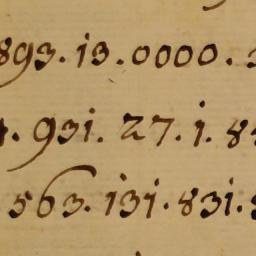 893. 13. 0000.
. 931. 27. 1. 8
563. 131. 831.